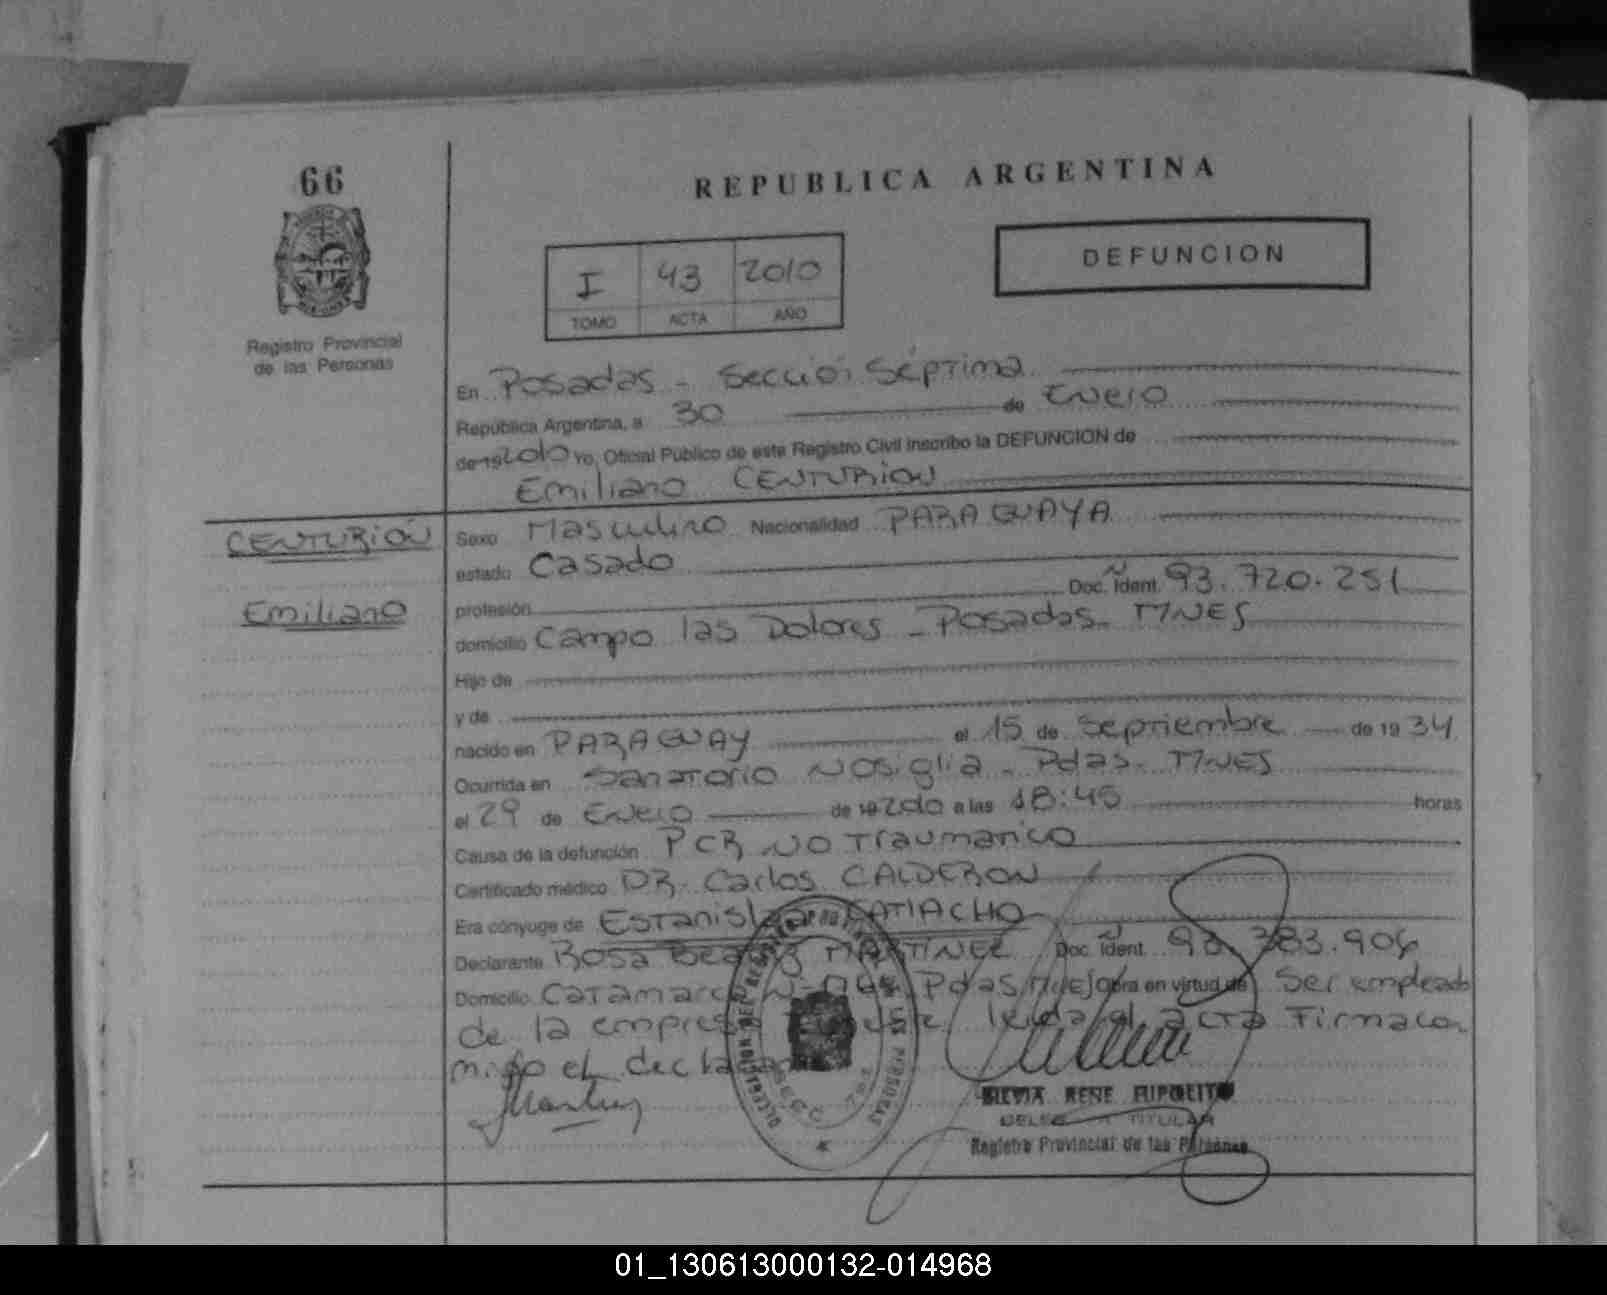 66
REPUBLICA ARGENTINA
DEFUNCION
I 43 2010
TOMO ACTA AÑO
Registro Provincial
de las Personas
En Posadas - Sección Séptima
República Argentina, a 30 de Enero
de 19 2010 Yo, Oficial Público de este Registro Civil inscribo la DEFUNCION de
Emiliano CENTURION
CENTURIÓN
Emiliano
Sexo Masculino Nacionalidad PARAGUAYA
estado Casado
profesión Doc. Ident. 93.720.251
domicilio Campo las Dolores - Posadas - MNES
Hijo de
y de
nacido en PARAGUAY el 15 de Septiembre de 19 34
Ocurrida en Sanatorio Nosiglia - Pdas - MNES
el 29 de Enero de 19 2010 a las 18:45 horas
Causa de la defunción PCR NO Traumatico
Certificado médico DR. Carlos CALDERON
Era cónyuge de Estanislaa
Declarante Rosa Beatriz MARTINEZ Doc. Ident. 383.906
Domicilio Catamarca Pdas MNES Obra en virtud de Ser empleado
de la empresa leida el acta Firma con
migo el declarante
SILVIA RENE HIPOLITO
TITULAR
Registro Provincial de las Personas
01_130613000132-014968